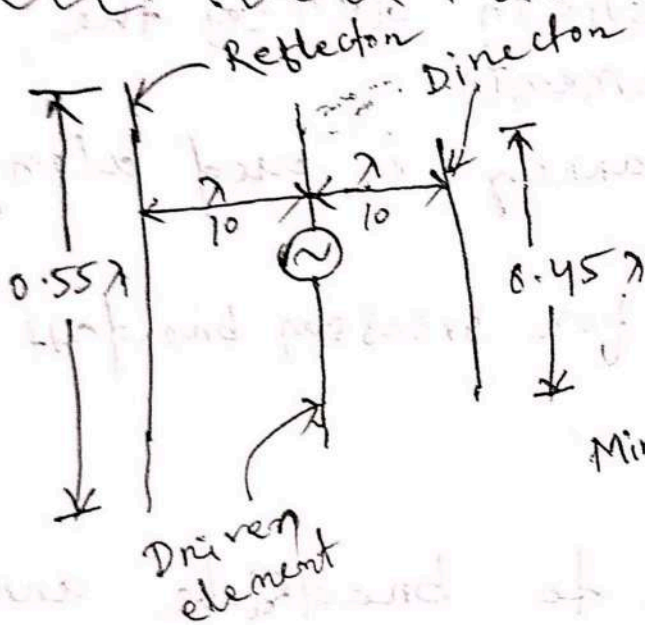 Reflector
Director
λ
10
λ
10
0.55λ
0.45λ
Driven
element